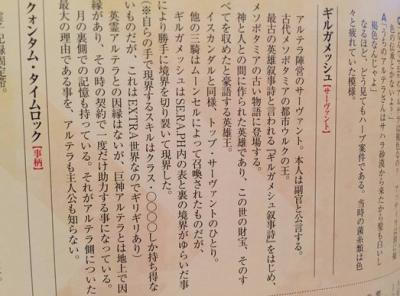 A「うちのアルテラさんはサハラ砂漠から来たから髪も白いし
褐色なんじゃよ」
なるほど、どう見てもハーブ案件である。当時の菌糸類は色
々と疲れていた模様。
ギルガメッシュ【サーヴァント】
アルテラ陣営のサーヴァント。本人は副官と公言する。
古代メソポタミアの都市ウルクの王。
最古の英雄叙事詩と言われる『ギルガメッシュ叙事詩』をはじめ、
メソポタミアの古い物語に登場する。
神と人との間に作られた英雄であり、この世の財宝、そのす
べてを収めたと豪語する英雄王。
イスカンダルと同様、トップ・サーヴァントのひとり。
他の三騎はムーンセルによって召喚されたものだが、
ギルガメッシュはSE.RA.PH内の表と裏の境界がゆらいだ事
により勝手に境界を切り裂いて現界した。
(※自らの手で現界するスキルはクラス・〇〇〇〇しか持ち得な
いものだが、これはEXTRA世界なのでギリギリあり)
英霊アルテラとの因縁はないが、巨神アルテラとは地上で因
縁があり、その時の契約で一度だけ助力する事になっている。
月の裏側での記憶も持っている。それがアルテラ側についた
最大の理由である事を、アルテラも主人公も知らない。
クォンタム・タイムロック【事柄】